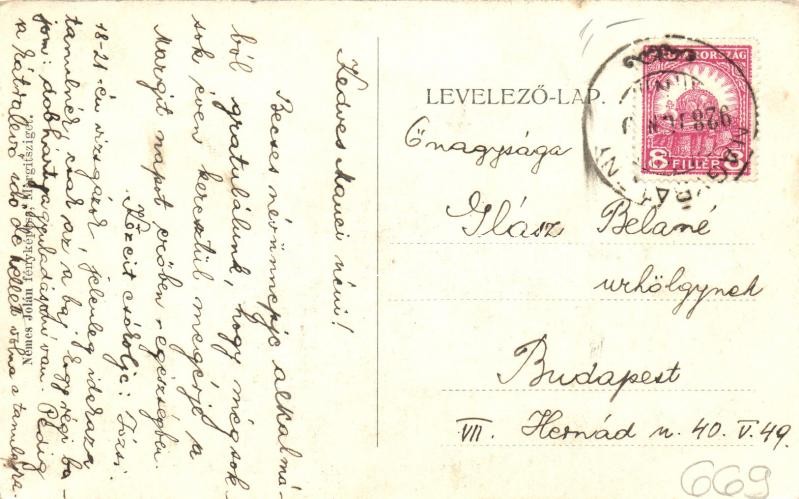 Kedves Manci néni!
Becses névünnepje alkalmá-
ból gratulálunk, hogy mégsok-
sok éven keresztül megérje a
Margit napot erőben egészségben.
Kézeit csókolja: Józsi.
18-21-én vizsgázok jelenleg idehaza
tanulnék, csak az a baj, hogy régi ba-
jom: dobhártyagyulladásom van. Pedig
a hátrallévő idő de kellett volna a tanulásra.
Nemes Jolán fényképész, Margitsziget.
LEVELEZŐ-LAP.
MAGYARORSZÁG
8 FILLÉR 8
Önagysága
Glász Beláné
urhölgynek
Budapest
VII. Hernád u. 40. V. 49.
669